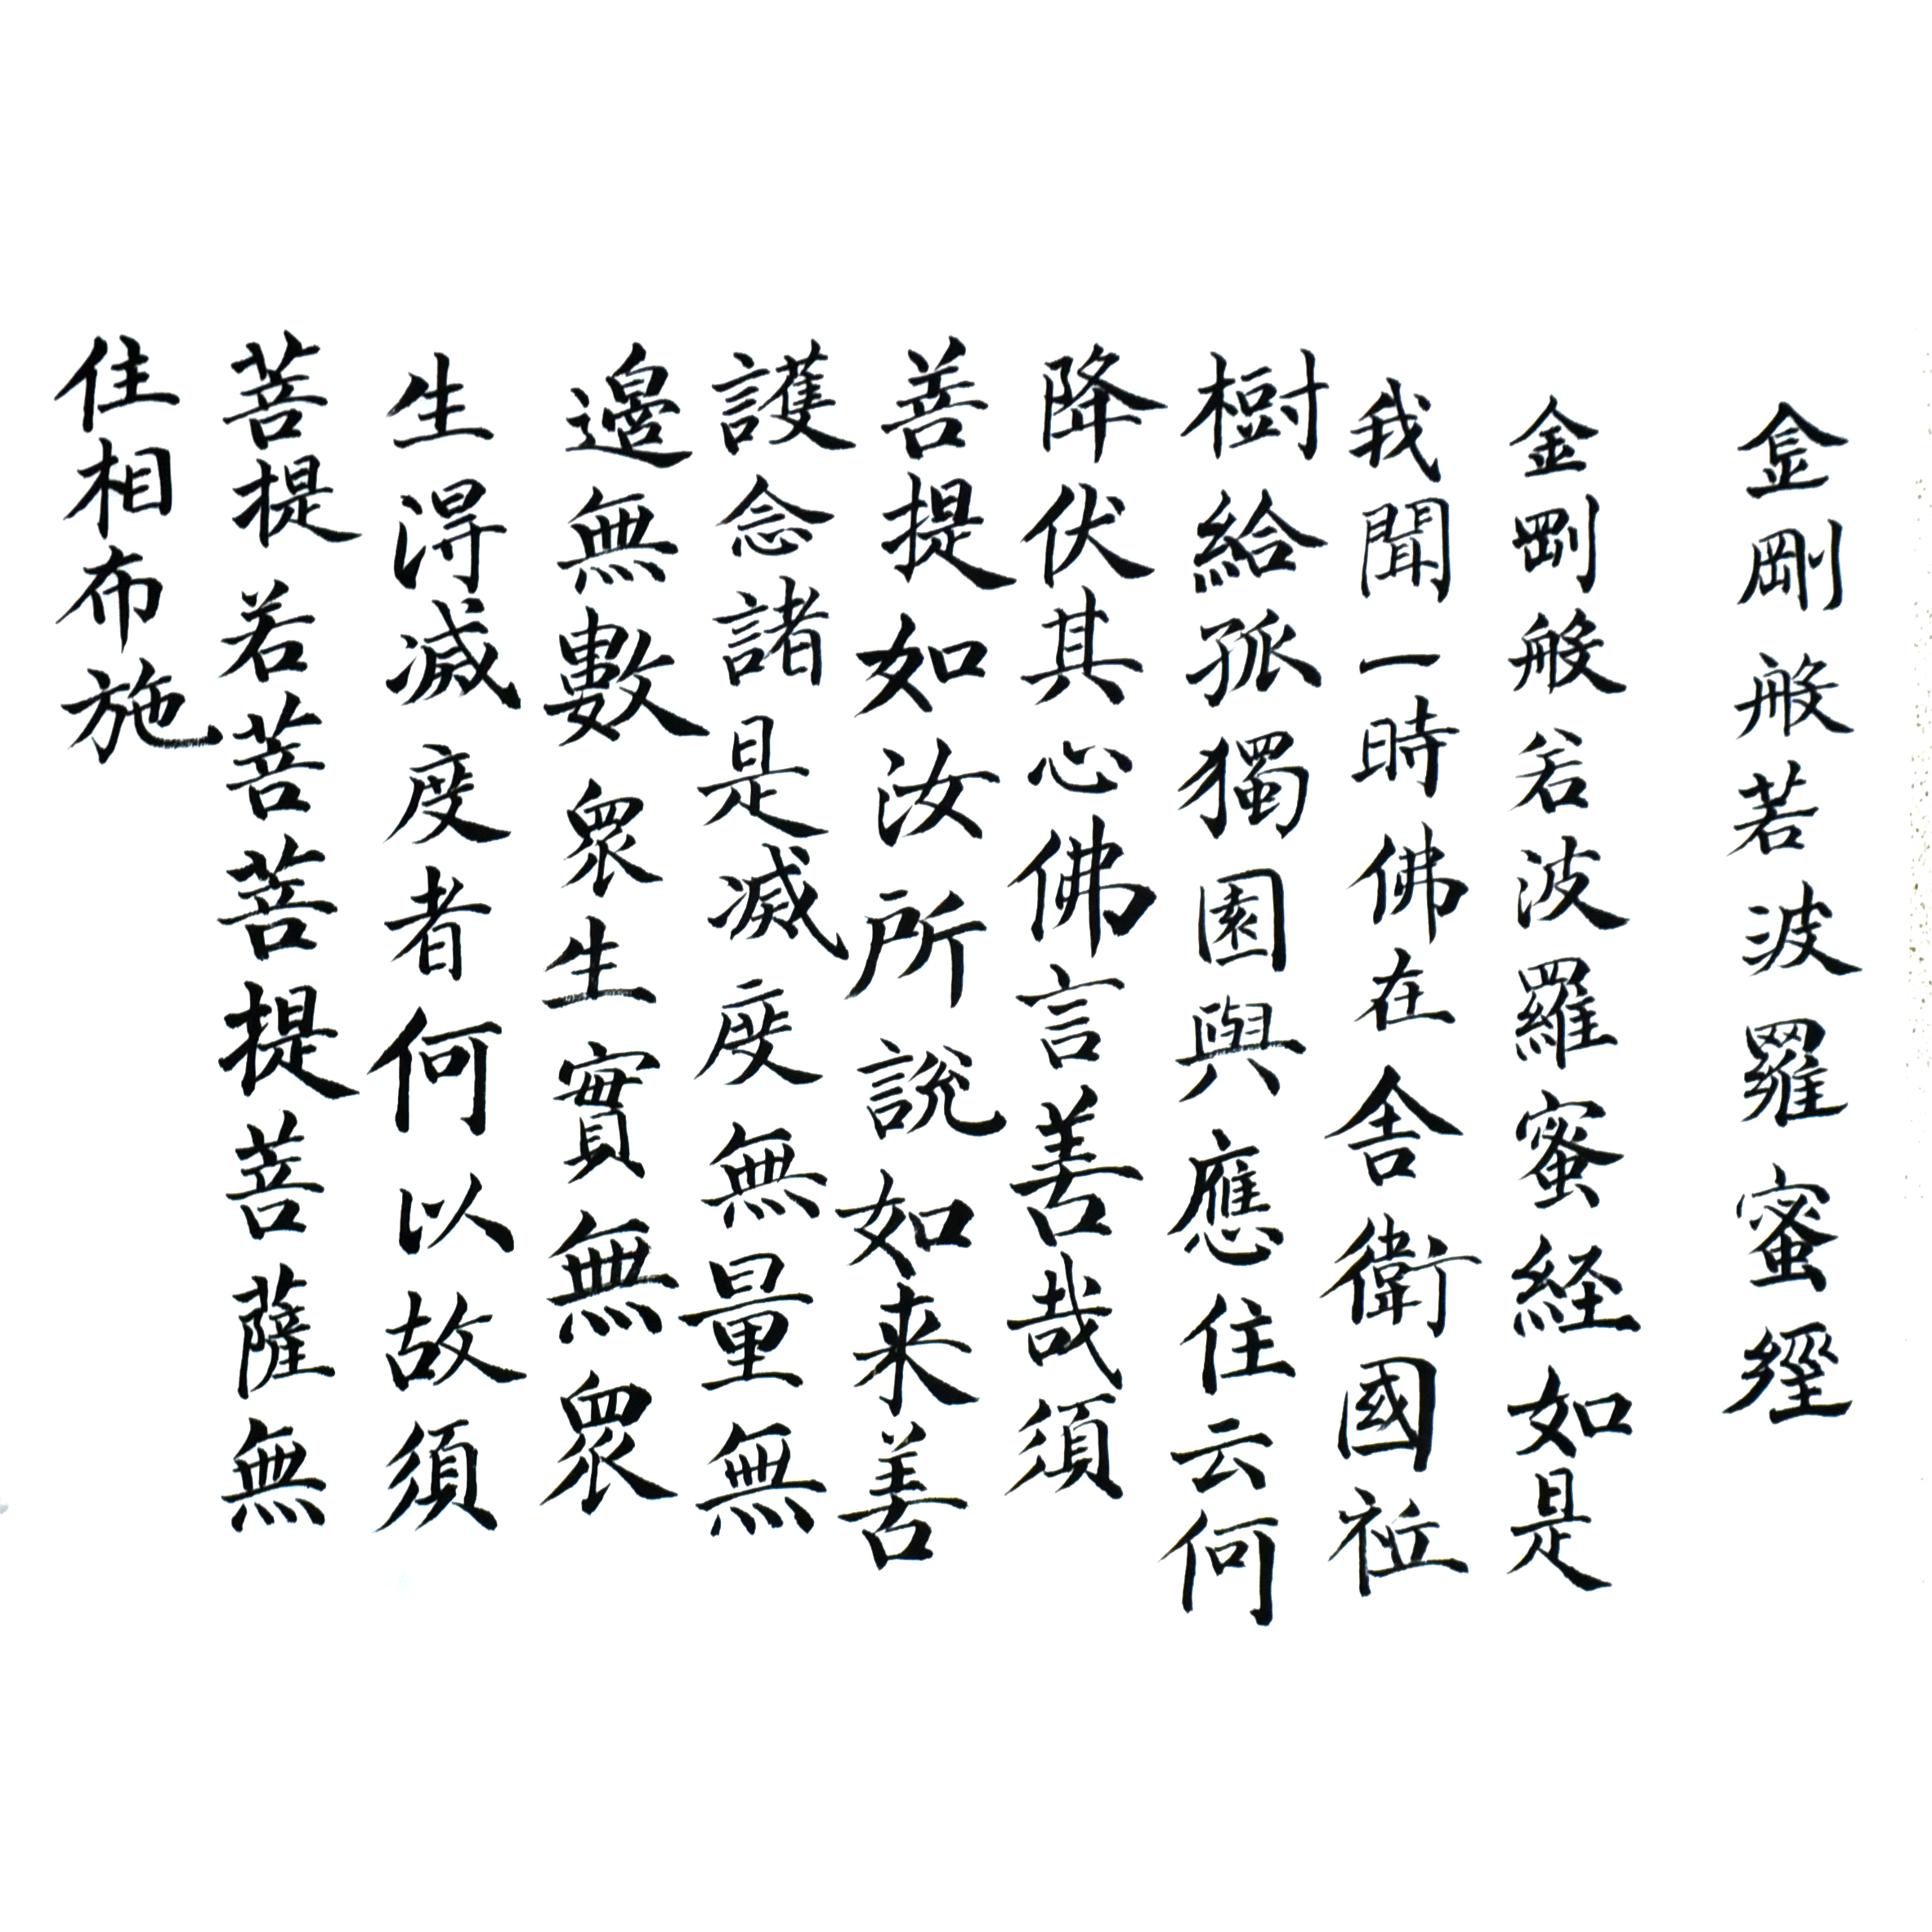 金剛般若波羅蜜經
金剛般若波羅蜜経如是
我聞一時佛在舎衛國祇
樹給孤獨園與應住云何
降伏其心佛言善哉須
菩提如汝所說如来善
護念諸是滅度無量無
邊無數眾生實無眾
生得滅度者何以故須
菩提若菩菩提菩薩無
住相布施